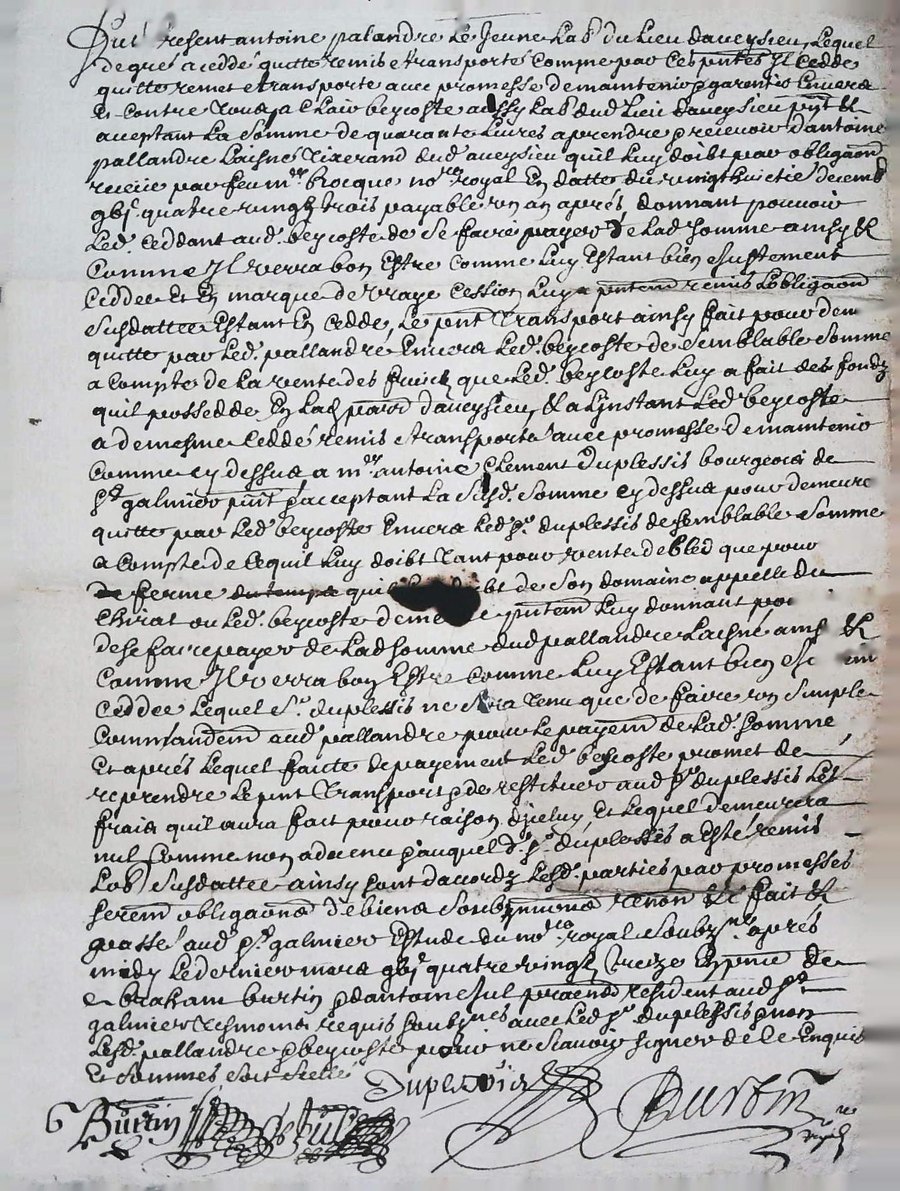 Fut present antoine palandre Le Jeune Lab.r du Lieu daveysieu, Lequel
de gré a ceddé quitte remis e transporté comme par ces pntes Il Cedde
quitte remet e transporte avec promesse de maintenir e garentir Envers
Et Contre Tous a Claiv beycoste aussy Lab.r dud Lieu daveysieu pnt &
aceptant La somme de quarante Livres a prendre e recevoir d'antoine
pallandre Laisné Tixerand dud aveysieu quil Luy doibt par obligaõn
receüe par feu m.e Rocque no.re royal En datte du vingthuictié decemb
gbj.c quatre vingtz trois payable un an aprés donnant pouvoir
Led. ceddant aud. beycoste de se faire payer de Lad somme ainsy &
Comme Il verra bon Estre comme Luy Estant bien e Justement
Ceddée Et En marque de vraye Cession Luy a pntem remis Lobligaõn
Susdattée Estant En cedde, Le pnt Transport ainsy fait pour dem
quitte par Led. pallandré Envers Led. beycoste de semblable somme
a Compte de La vente des fruictz que Led. beycoste Luy a fait des fondz
quil possedde En Lad parr daveysieu, & a Linstant Led beycoste
a de mesme Ceddé remis e transporté avec promesse de maintenir
Comme cy dessus a m.e antoine Clement duplessis bourgeois de
S.t galmier pnt e acceptant La Susd. Somme cy dessus pour demeure
quitte par Led. beycoste Envers Led s.r duplessis de semblable Somme
a Compte de Cequil Luy doibt Tant pour vente de bled que pour
ferme qui bt de son domaine appellé du
Chirat ou Led. beycoste deme e pntem Luy donnant po
de se faire payer de Lad somme dud pallandre Laisné ains &
Comme Il verra bon Estre Comme Luy Estant bien e em
Ceddée Lequel s.r duplessis ne sera Tenu que de faire un Simple
Commandem aud. pallandre pour Le payem de Lad. somme
Et aprés Lequel faute de payement Led. beycoste promet de
reprendre Le pnt Transport e de restituer aud s.r duplessis Les
frais quil aura fait pour raison dicelluy Et Lequel demeurera
nul Comme non advenu e auquel d. s.r duplessis a Esté remis
Lob Susdattée ainsy sont dacordz Lesd. parties par promesses
serem obligaõns de biens Soubzmions renon & fait &
passé aud S.t galmier Estude du no.re royal soubz.né aprés
midy Le dernier mars gbj.c quatre vingtz Treize En pnce de
abraham burtin e d antoine Jul praend resident aud S.t
galmier Tesmoins requis soubz.nes avec Led s.r duplessis e non
Lesd. pallandre e beycoste pour ne sçavoir signer de ce Enquis
Et Sommés soit scellé
Duplessis
Burtin